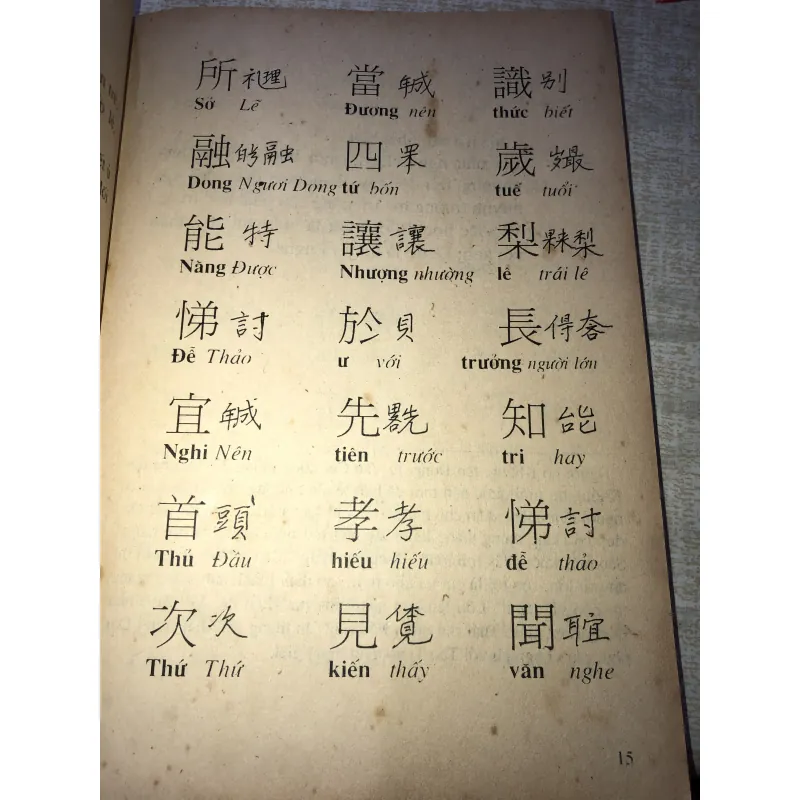 所 當 𢧚 識 別
Sở Lẽ Đương nên thức biết
融 融 四 𦊚 歲
Dong Ngươi Dong tứ bốn tuế tuổi
能 特 讓 讓 梨 梨
Năng Được Nhượng nhường lê trái lê
悌 討 於 貝 長 得
Đễ Thảo ư với trưởng người lớn
宜 𢧚 先 知
Nghi Nên tiên trước tri hay
首 頭 孝 孝 悌 討
Thủ Đầu hiếu hiếu đễ thảo
次 次 見 聞 𦖑
Thứ Thứ kiến thấy văn nghe
15